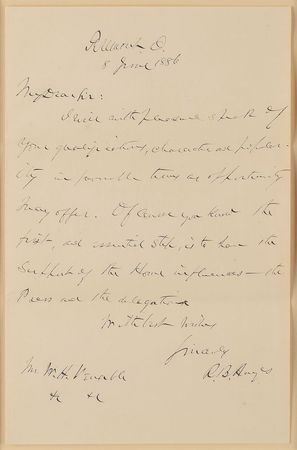 Fremont, O.
8 June 1886
My Dear Sir:
I will with pleasure speak of
your qualifications, character and popular-
ity in favorable terms as opportunity
may offer. Of course you know the
first, and essential step, is to have the
Support of the Home influences — the
Press and the delegation.
With best wishes
Sincerely
R. B. Hayes
Mr. W. H. Venable
&c &c